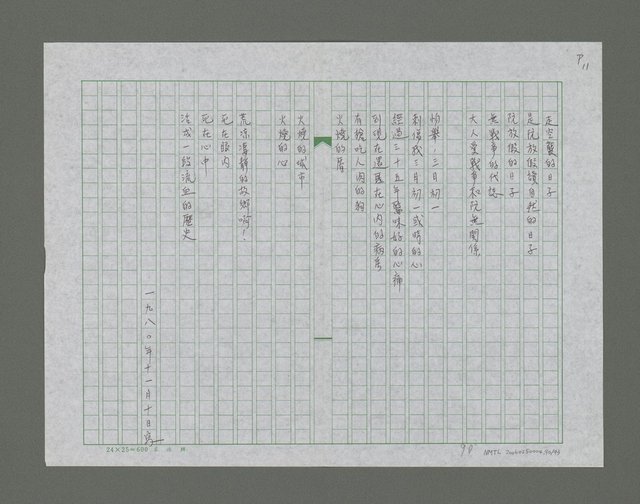 P11
走空襲的日子
是阮放假讀自然的日子
阮放假的日子
無戰爭的代誌
大人愛戰爭和阮無關係
怕樂,三月初一
刺傷我三月初一彼時的心
經過三十五年醫昧好的心痛
到現在還在心內的病
有核吃人肉的狗
火燒的厝
火燒的城市
火燒的心
荒凉凄靜的故鄉啊!
死在眼內
死在心中
活成一段流血的歷史
一九八〇年十一月十日寫
24×25=600
90